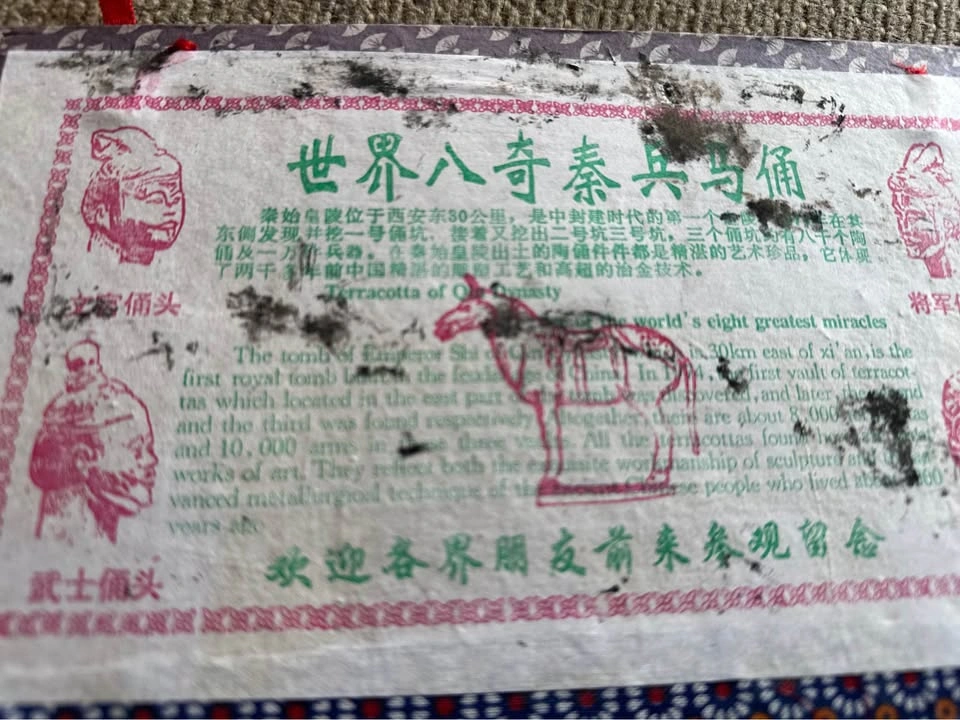 世界八奇秦兵马俑
秦始皇陵位于西安东30公里，是中封建时代的第一个在其
东侧发现并挖一号俑坑、接着又挖出二号坑三号坑，三个俑坑约有八千个陶
俑及一万件兵器。在秦始皇陵出土的陶俑件件都是精湛的艺术珍品，它体现
了两千多年前中国精湛的雕塑工艺和高超的冶金技术。
文官俑头
将军
Terracotta of Qin Dynasty
of the world's eight greatest miracles
The tomb of Emperor Shi is 30km east of xi'an, is the
first royal tomb built in the feudal of China. In the first vault of terracot-
tas which located in the east part of the tomb was discovered, and later the
and the third was found respectively. altogether, there are about 8,000
and 10,000 arms in these three vaults. All the terracottas found
works of art. They reflect both the exquisite workmanship of sculpture and
vanced metallurgical technique of the Chinese people who lived
years ago
欢迎各界朋友前来参观留念
武士俑头